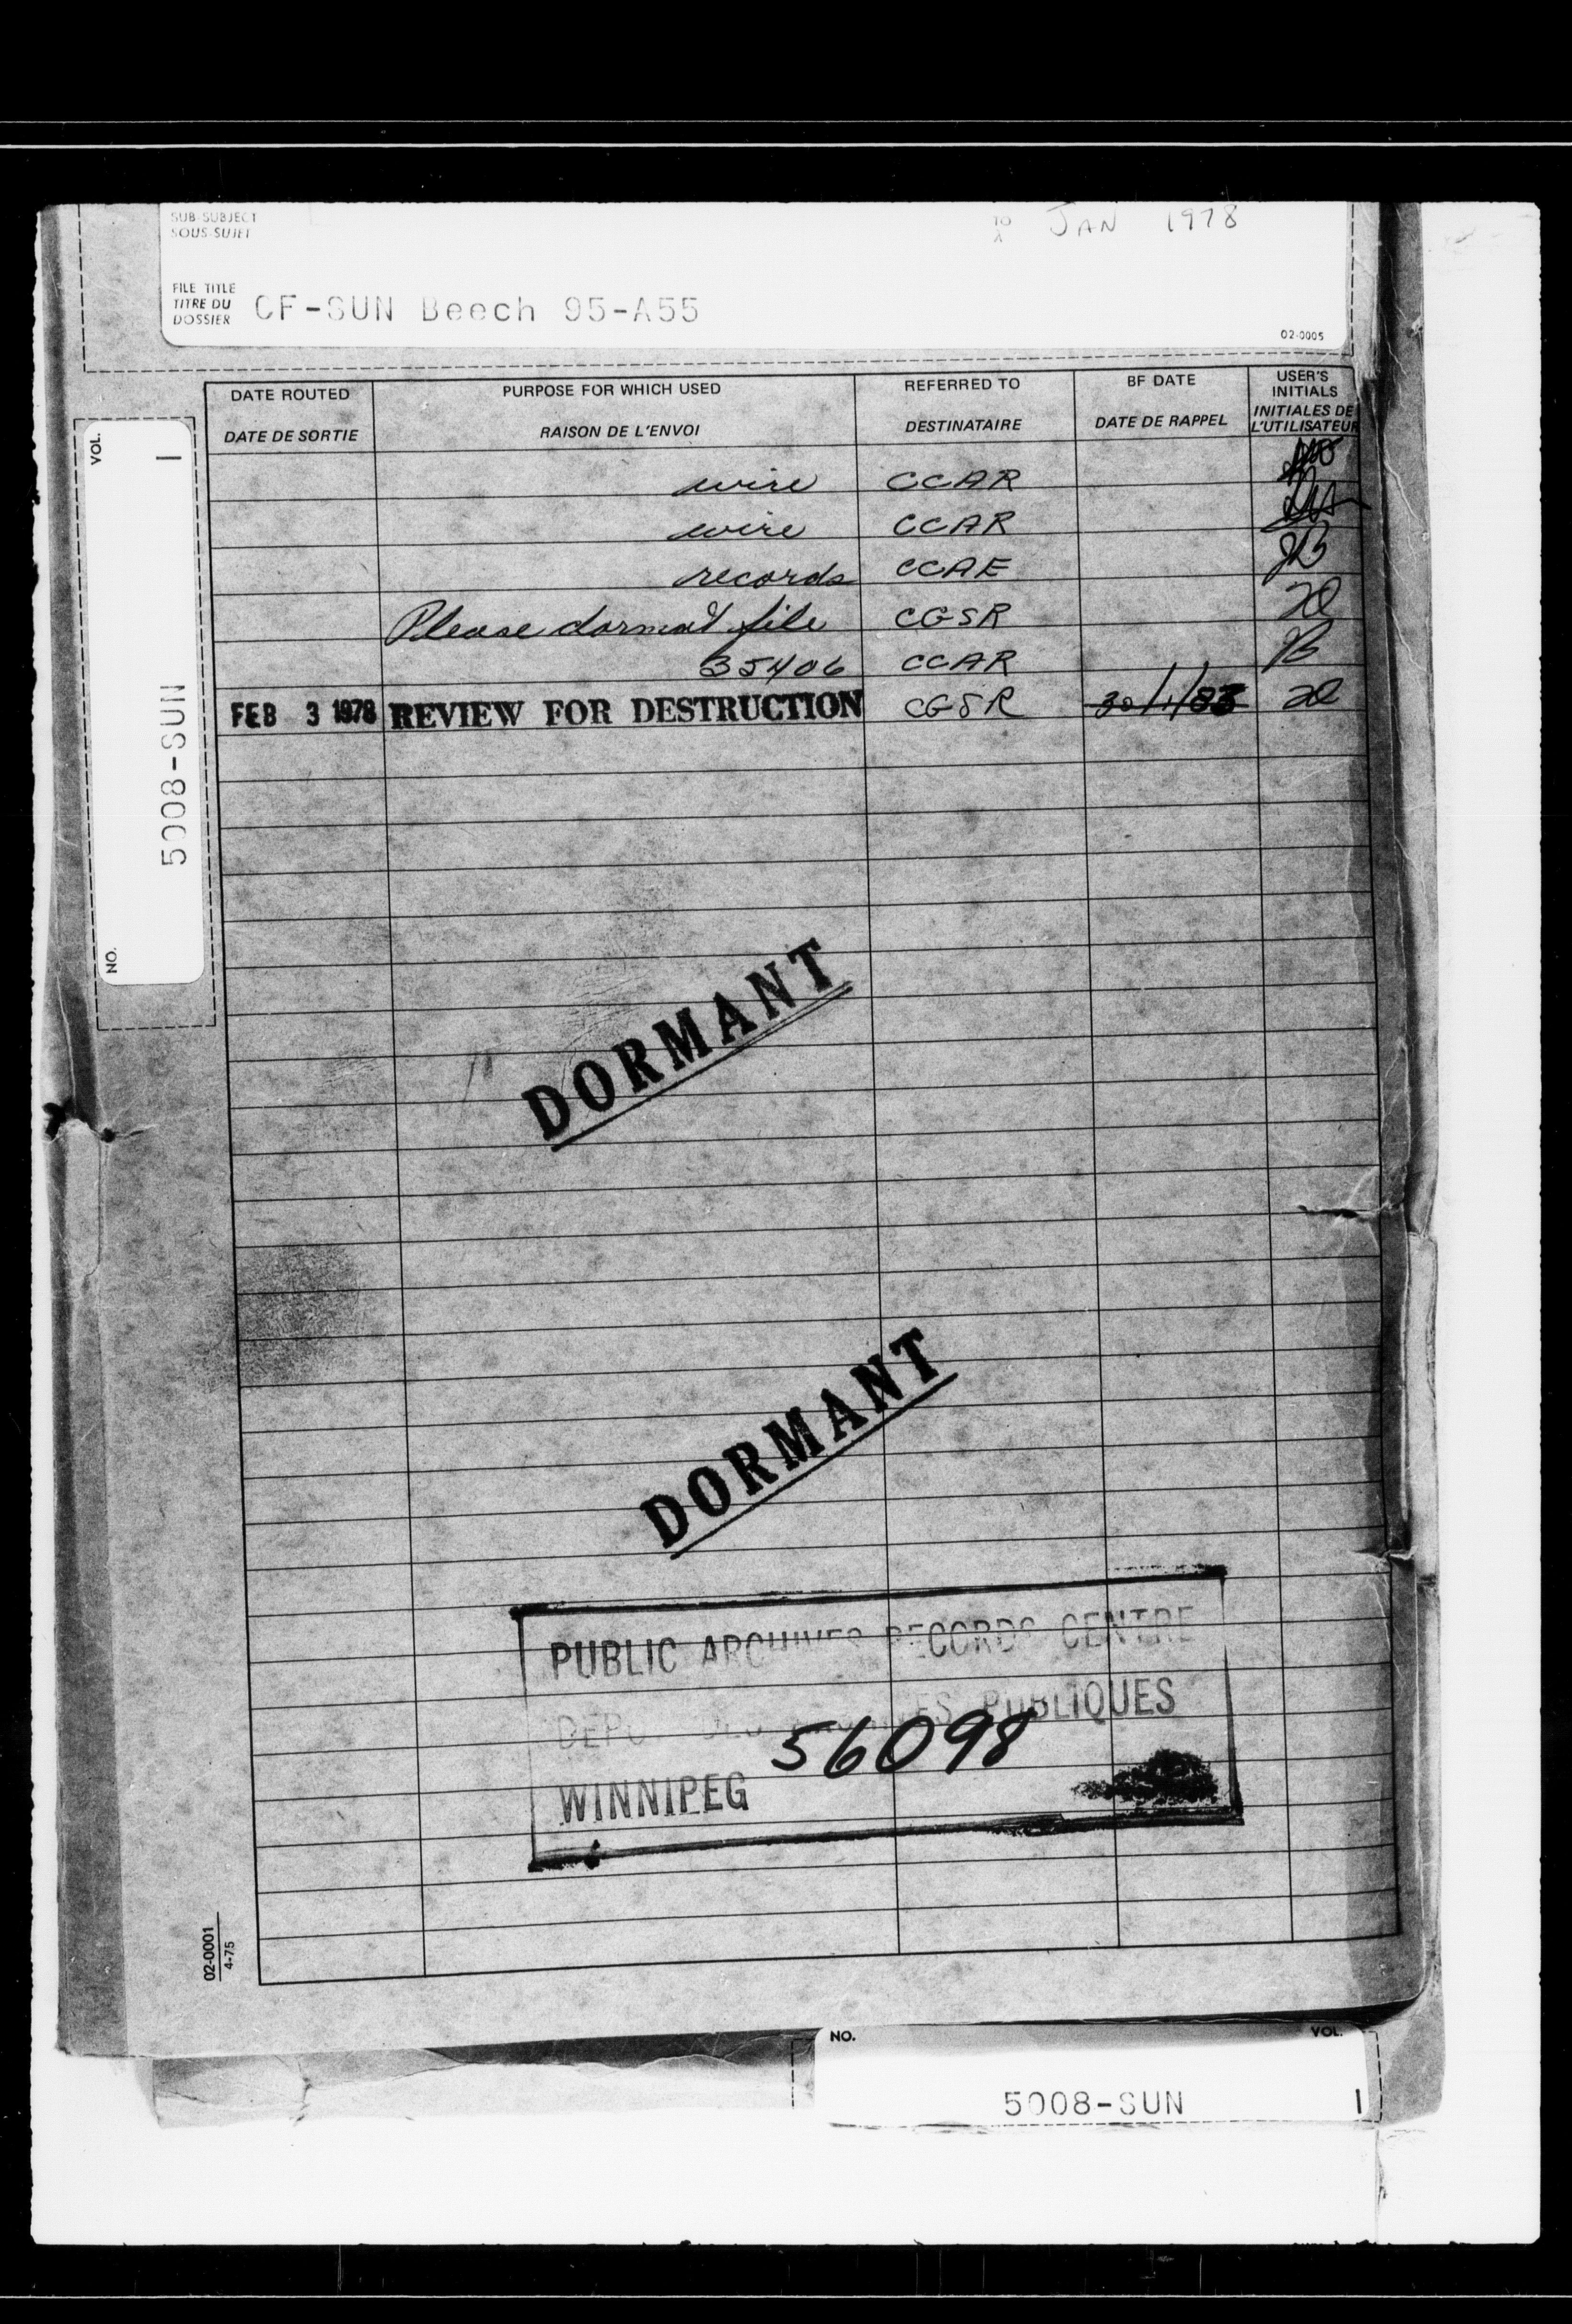 SUB-SUBJECT
SOUS-SUJET
TO
A
JAN 1978
FILE TITLE
TITRE DU
DOSSIER
CF-SUN Beech 95-A55
02-0005
DATE ROUTED PURPOSE FOR WHICH USED REFERRED TO BF DATE USER'S INITIALS
DATE DE SORTIE RAISON DE L'ENVOI DESTINATAIRE DATE DE RAPPEL INITIALES DE L'UTILISATEUR
VOL. 1
NO. 5008-SUN
wire CCAR
wire CCAR
records CCAE JB
Please dormant file CGSR
35406 CCAR
FEB 3 1978 REVIEW FOR DESTRUCTION CGSR 30/1/83
DORMANT
DORMANT
PUBLIC ARCHIVES RECORDS CENTRE
DEPOT DES ARCHIVES PUBLIQUES
56098
WINNIPEG
02-0001
4-75
NO. VOL.
5008-SUN 1